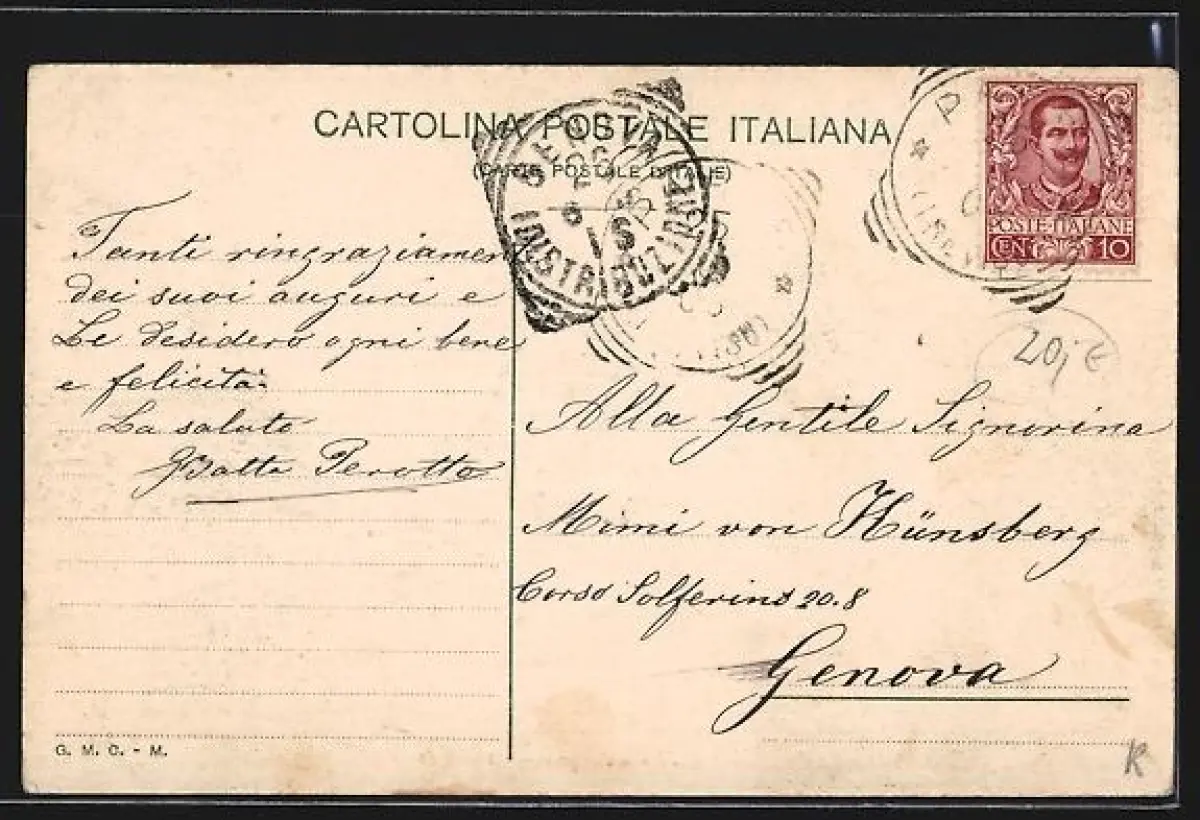 CARTOLINA POSTALE ITALIANA
(CARTE POSTALE D'ITALIE)
POSTE ITALIANE
CEN 10
GENOVA
DISTRIBUZIONE
20,- €
Tanti ringraziamen
dei suoi auguri e
Le desidero ogni bene
e felicità.
La saluto
Perotto
Alla Gentile Signorina
Mimi von Künsberg
Corso Solferino 20.8
Genova
G. M. C. - M.
K